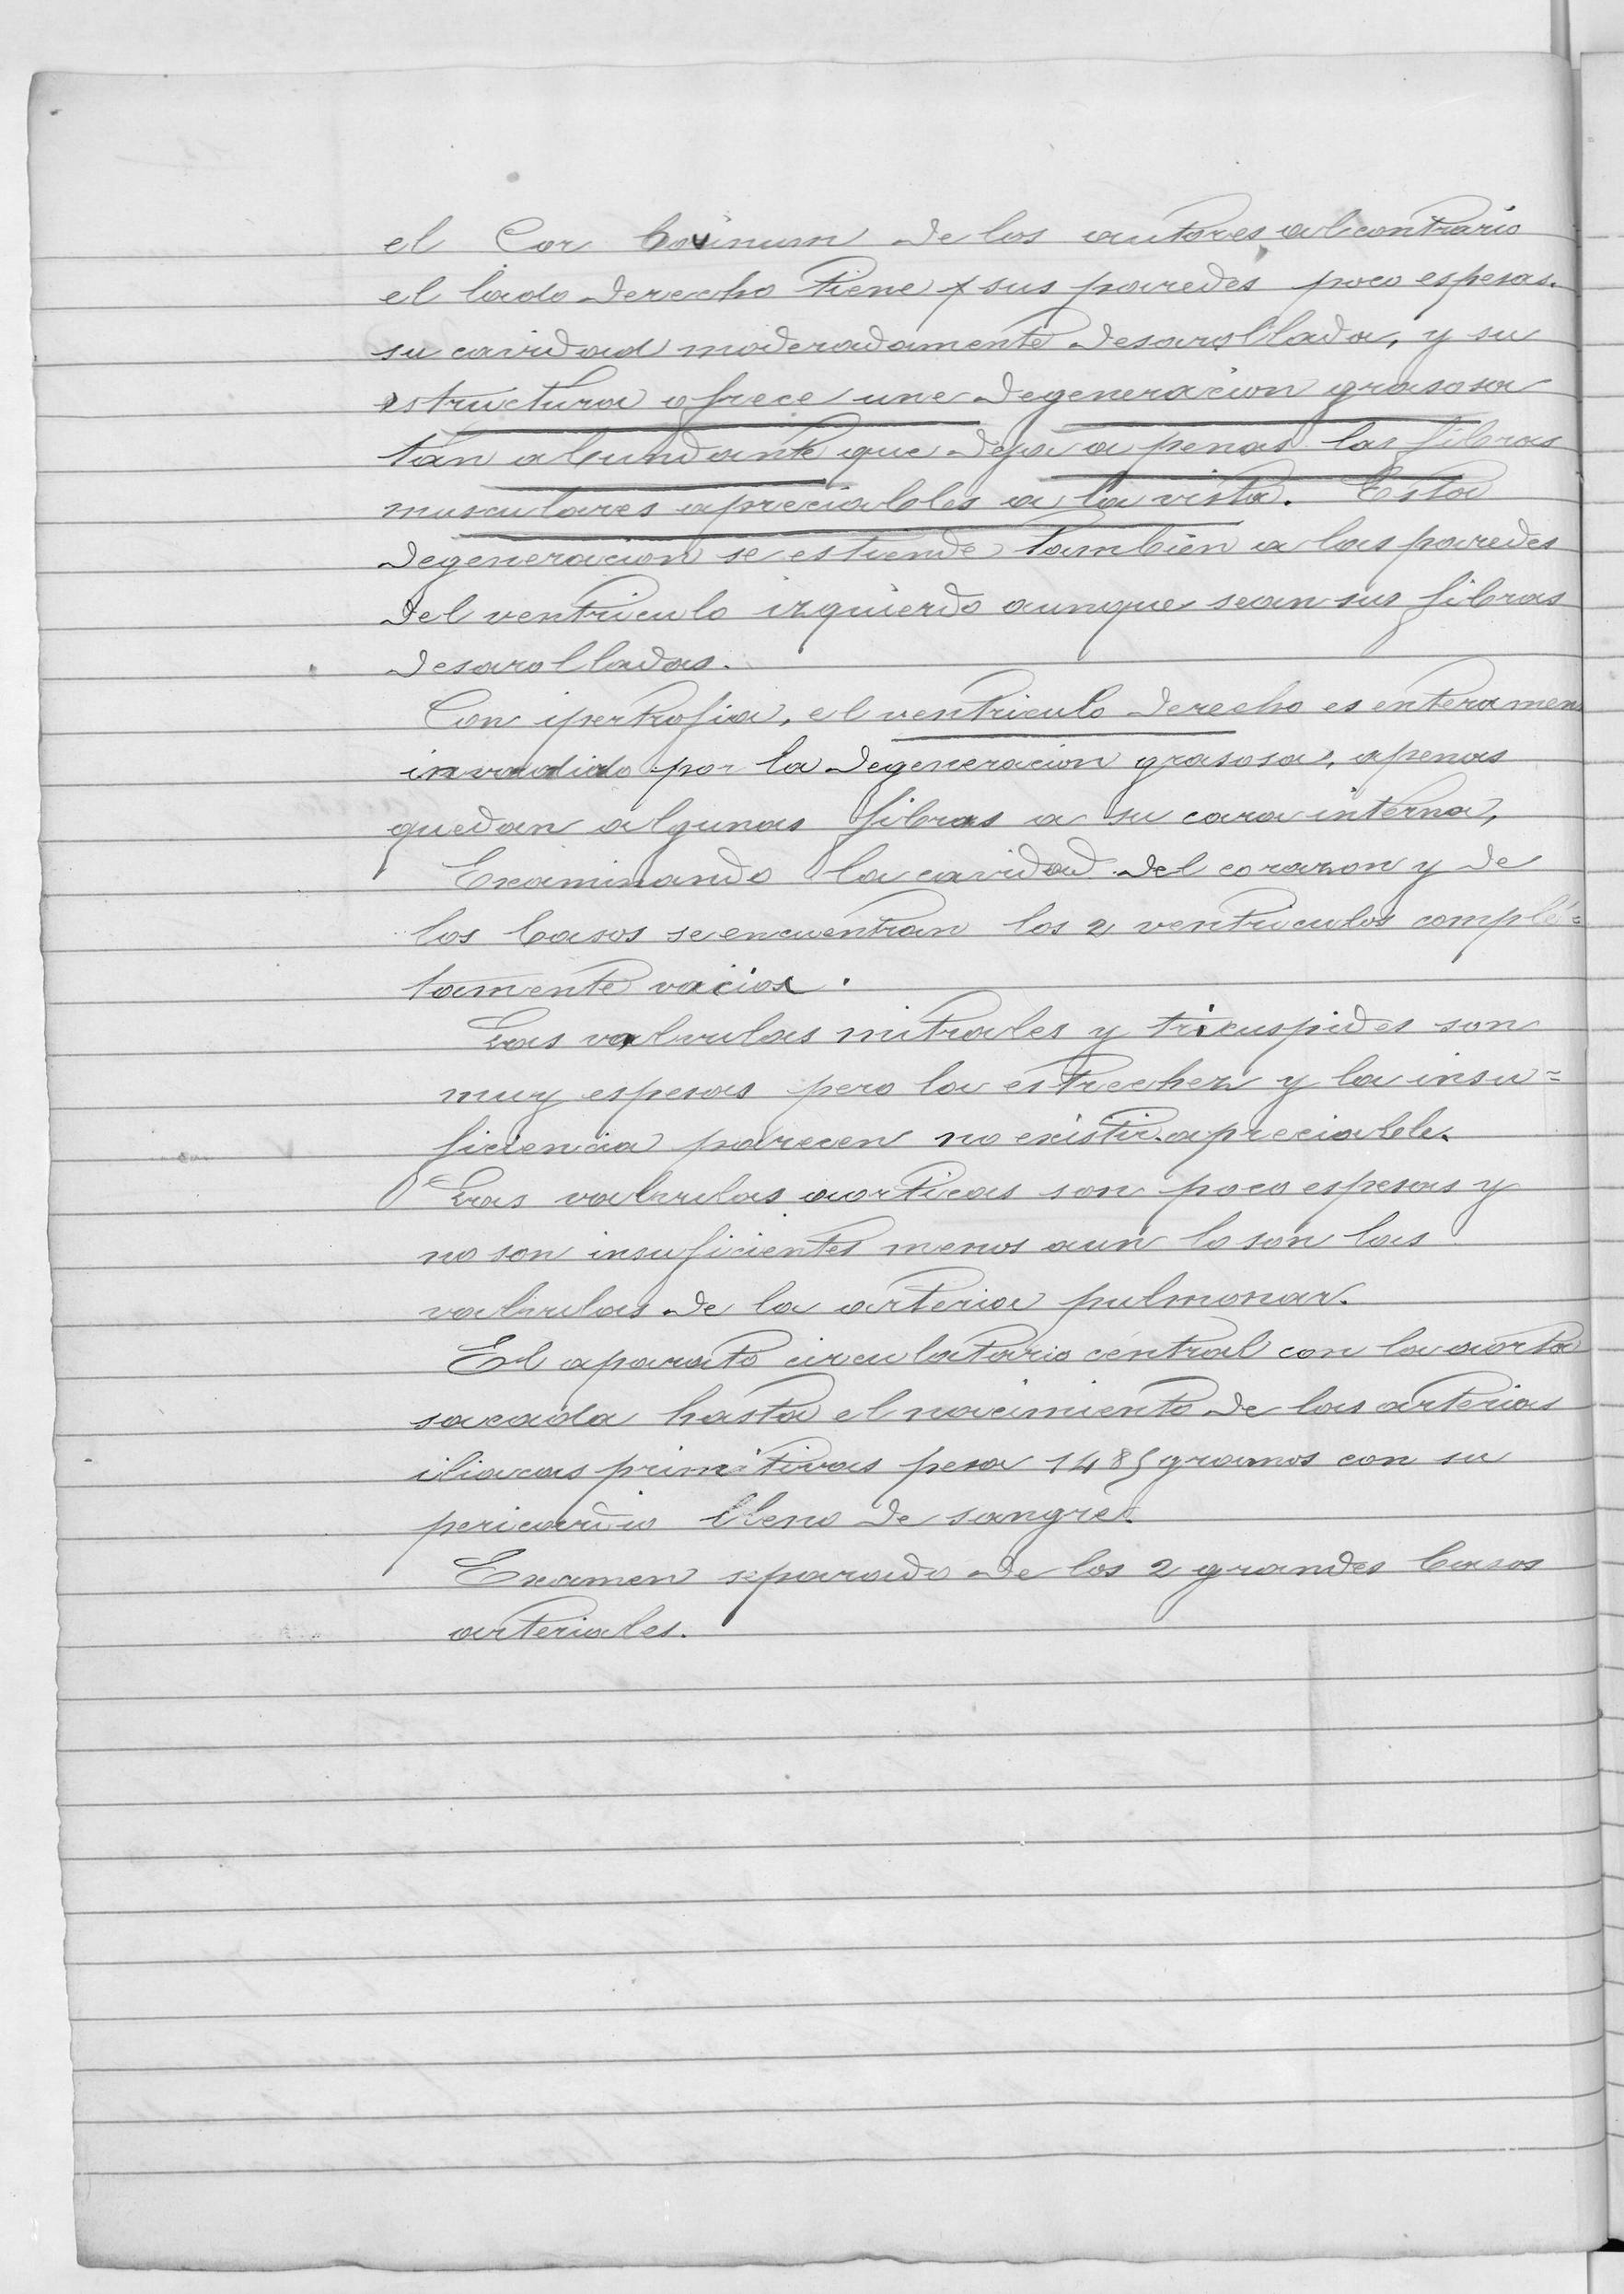 el Cor bovinum de los autores al contrario
el lado derecho tiene sus paredes poco espesas.
su cavidad moderadamente desarollada, y su
estructura ofrece une degeneracion grasosa
tan abundante que deja a penas las fibras
musculares apreciables a la vista. Esta
degeneracion se estiende tambien a las paredes
del ventriculo izquierdo aunque sean sus fibras
desarolladas.
Con ipertrofia, el ventriculo derecho es enteramen
invadido por la degeneracion grasosa, apenas
quedan algunas fibras a su cara interna,
Examinando la cavidad del corazon y de
los basos se encuentran los 2 ventriculos complé=
tamente vacios.
Las valvulas mitrales y tricuspides son
muy espesas pero la estrechez y la insu=
ficiencia parecen no existir apreciable.
Las valvulas aorticas son poco espesas y
no son insuficientes menos aun lo son las
valvulas de la arteria pulmonar.
El aparato circulatorio central con la aorta
sacada hasta el nacimiento de las arterias
iliacas primitivas pesa 1485 gramos con su
pericardio lleno de sangre.
Examen separado de los 2 grandes basos
arteriales.